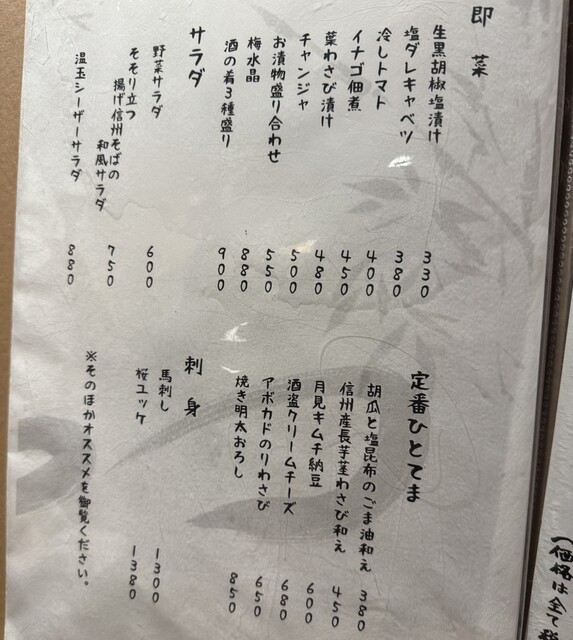 即菜
生黒胡椒塩漬け 330
塩ダレキャベツ 380
冷しトマト 400
イナゴ佃煮 450
葉わさび漬け 480
チャンジャ 500
お漬物盛り合わせ 550
梅水晶 880
酒の肴3種盛り 900
サラダ
野菜サラダ 600
そそり立つ
揚げ信州そばの
和風サラダ 750
温玉シーザーサラダ 880
定番ひとてま
胡瓜と塩昆布のごま油和え 380
信州産長芋茎わさび和え 450
月見キムチ納豆 600
酒盗クリームチーズ 680
アボカドのりわさび 650
焼き明太おろし 850
刺身
馬刺し 1300
桜ユッケ 1380
※そのほかオススメを御覧ください。
(価格は全て税